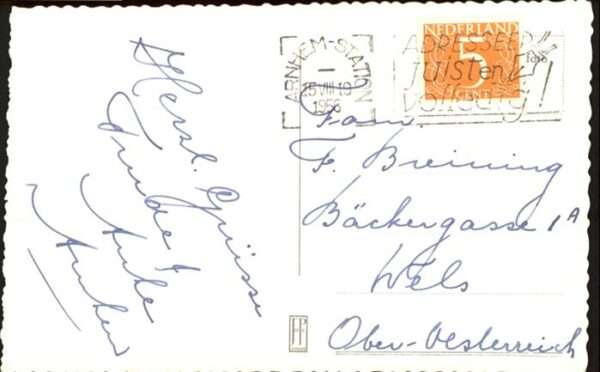 Herzl. Grüsse
Trude &
Anke
ARNHEM-STATION
15 VIII 19
1956
NEDERLAND
5
CENT
ADRESSEER
JUIST en
volledig!
Fam.
F. Breining
Bäckergasse 1A
Wels
Ober-Oesterreich